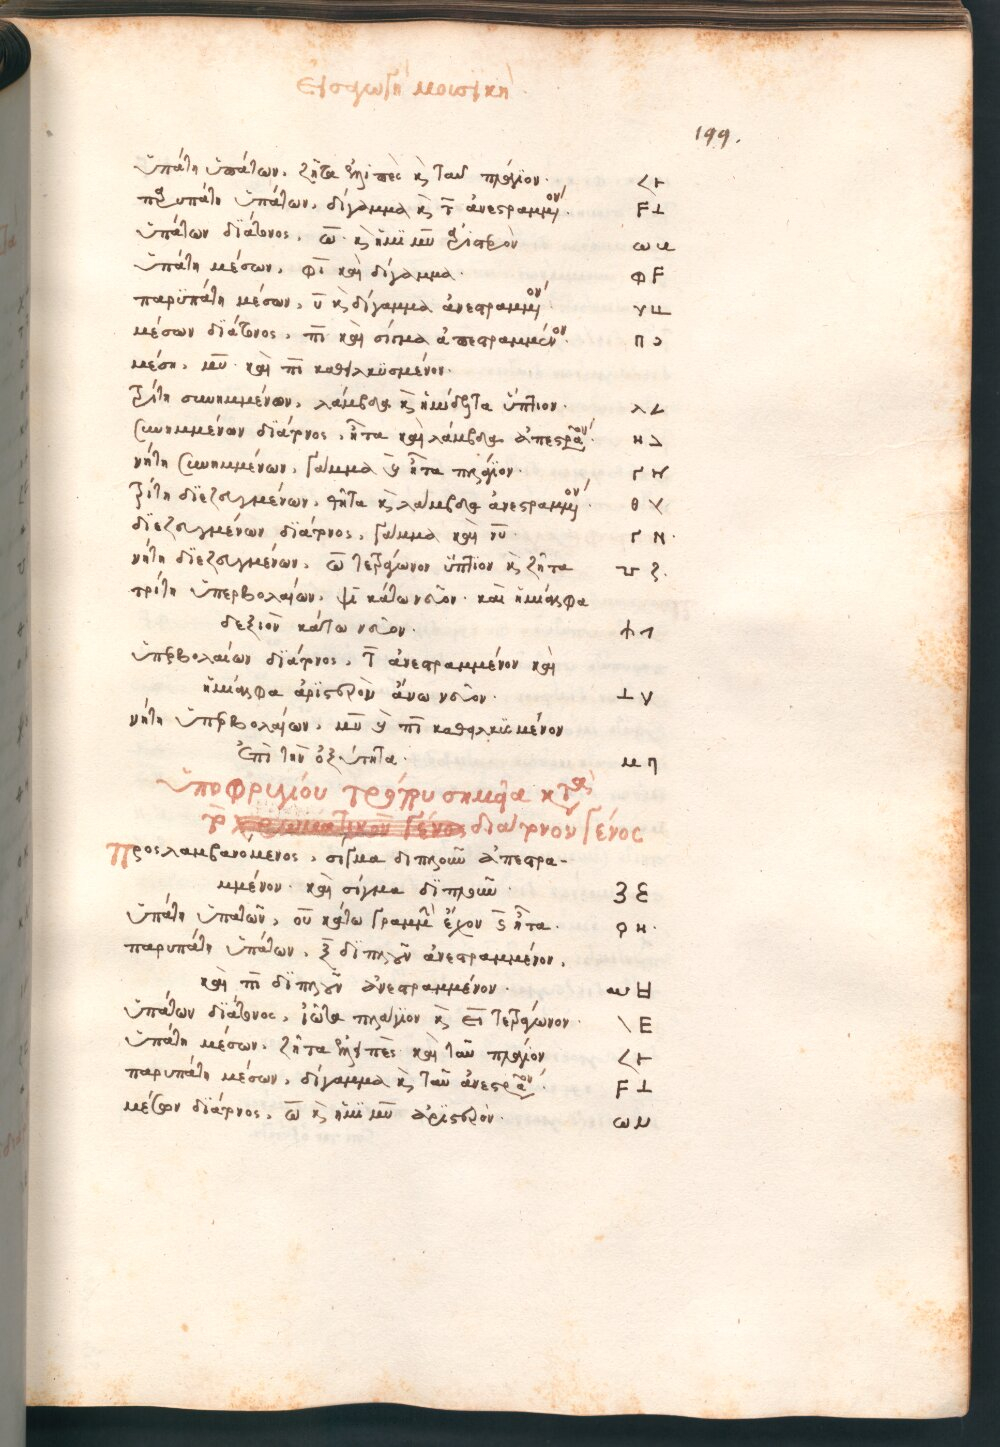 Εἰσαγωγὴ μουσικὴ
199.
ὑπάτη ὑπάτων. ζῆτα ἐλιπὲς κὶ ταῦ πλάγιον· <⊢
παρυπάτη ὑπάτων. δίγαμμα κὶ τ̄ ἀνεστραμμένον· Ϝ⊥
ὑπάτων διάτονος. ω̄ κὶ ἥμι μῦ ἀριστερὸν ω
ὑπάτη μέσων. φῑ καὶ δίγαμμα· φ Ϝ
παρϋπάτη μέσων. ῡ κὶ δίγαμμα ἀνεστραμμένον· υ
μέσων διάτονος. πῑ καὶ σίγμα ἀπεστραμμένον· π ͻ
μέση. μῦ καὶ πῑ καθειλκϋσμένον·
τρίτη συνημμένων. λάμβδα κὶ ἡμίδελτα ὕπτιον· λ
συνημμένων διάτονος. ἦτα καὶ λάμβδα ἀπεστραμμένον· Η
νήτη συνημμένων. γάμμα κὶ ἦτα πλάγϊον· Γ
τρίτη διεζευγμένων. θῆτα κὶ λάμβδα ἀνεστραμμένον· θ Υ
διεζευγμένων διάτονος. γάμμα καὶ νῦ· Γ Ν·
νήτη διεζευγμένων. ω̄ τετράγωνον ὕπτιον κὶ ζῆτα Ζ.
τρίτη ὑπερβολαίων. ψῑ κάτω νεῦον· καὶ ἡμίαλφα
δεξιὸν κάτω νεῦον·
ὑπερβολαίων διάτονος. τ̄ ἀνεστραμμένον καὶ
ἡμίαλφα ἀριστερὸν ἄνω νεῦον· ⊥
νήτη ὑπερβολαίων. μῦ κὶ πῑ καθειλκϋσμένον
ἐπὶ τὴν ὀξύτητα· Μ
ὑποφρυγίου τρόπου σημεῖα κατὰ
τὸ χρωματικὸν γένος διάτονον γένος
Προσλαμβανόμενος. σίγμα διπλοῦν ἀπεστρα-
μμένον· καὶ σίγμα διπλοῦν· 3 Ɛ
ὑπάτη ὑπάτων. οῦ κάτω γραμμὴν ἔχον κὶ ἦτα· Η·
παρυπάτη ὑπάτων. ξ̄ διπλοῦν ἀνεστραμμένον.
καὶ πῑ διπλοῦν ἀνεστραμμένον·
ὑπάτων διάτονος. ἰῶτα πλάγϊον κὶ ει τετράγωνον· \ Ε
ὑπάτη μέσων. ζῆτα ἐλιπὲς καὶ ταῦ πλάγιον <⊢
παρυπάτη μέσων. δίγαμμα κὶ ταῦ ἀνεστραμμένον· Ϝ⊥
μέσων διάτονος. ω̄ κὶ ἥμι μῦ ἀριστερὸν· ω